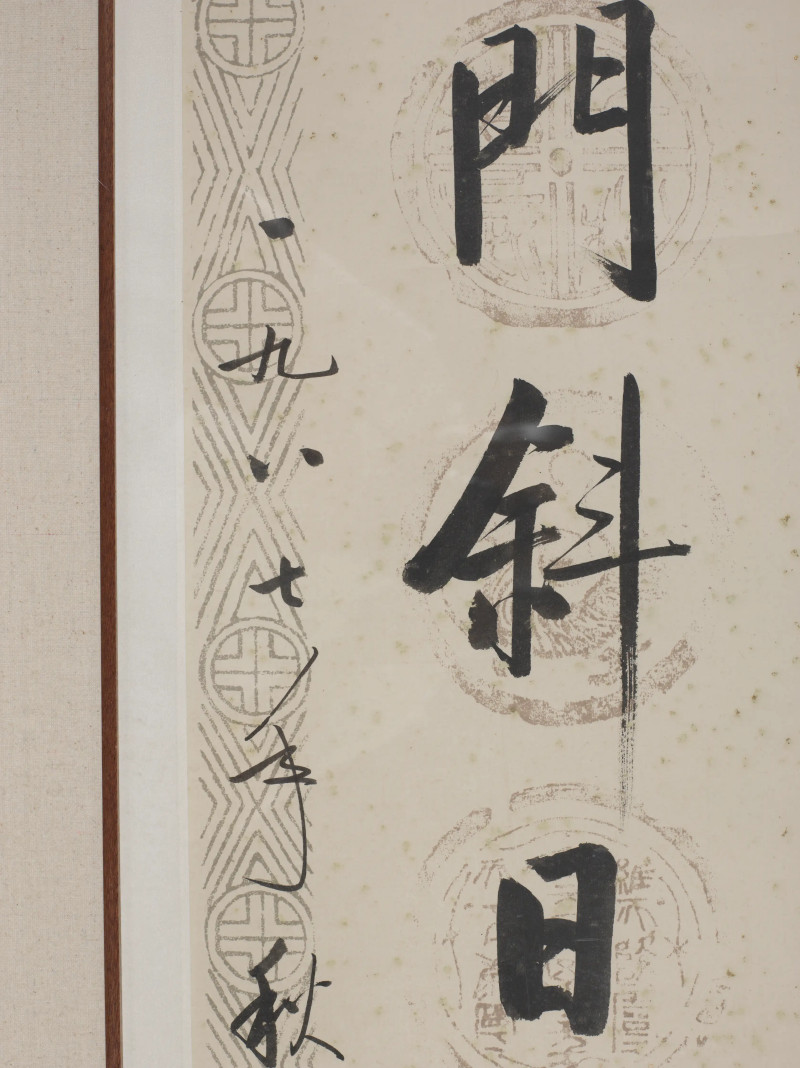 門斜日
一九八七年秋